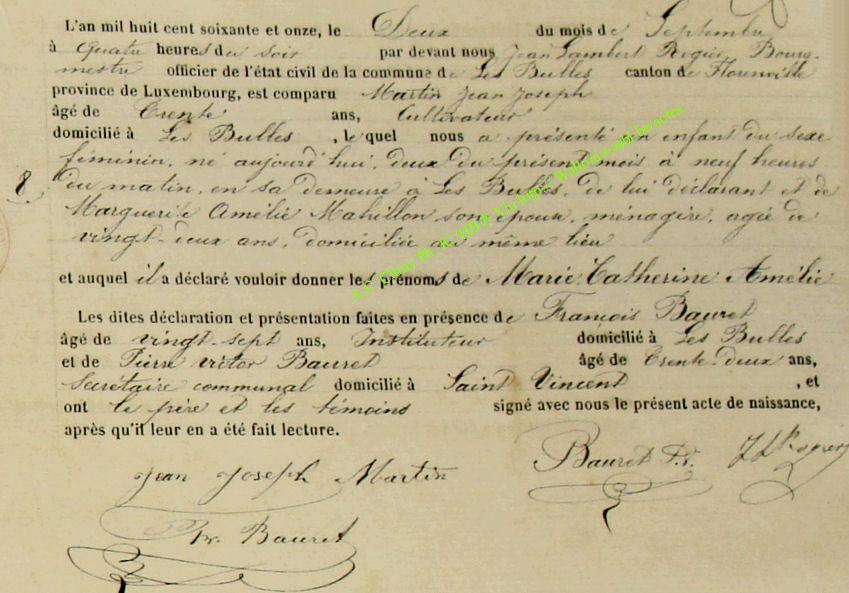 L'an mil huit cent soixante et onze, le Deux du mois de Septembre
à quatre heures du soir par devant nous Jean Lambert Rogier Bourg-
mestre officier de l'état civil de la commune de Les Bulles canton de Florenville
province de Luxembourg, est comparu Martin Jean Joseph
âgé de Trente ans, Cultivateur
domicilié à Les Bulles, lequel nous a présenté un enfant du sexe
féminin, né aujourd'hui, deux du présent mois à neuf heures
8. du matin, en sa demeure à Les Bulles, de lui déclarant et de
Marguerite Amélie Mahillon son épouse, ménagère, agée de
vingt-deux ans, domiciliée au même lieu
et auquel il a déclaré vouloir donner les prénoms de Marie Catherine Amélie
Les dites déclaration et présentation faites en présence de François Bauret
âgé de vingt-sept ans, Instituteur domicilié à Les Bulles
et de Pierre victor Bauret âgé de Trente-deux ans,
Secrétaire communal domicilié à Saint Vincent, et
ont le père et les témoins signé avec nous le présent acte de naissance,
après qu'il leur en a été fait lecture.
Jean Joseph Martin Bauret
Bauret